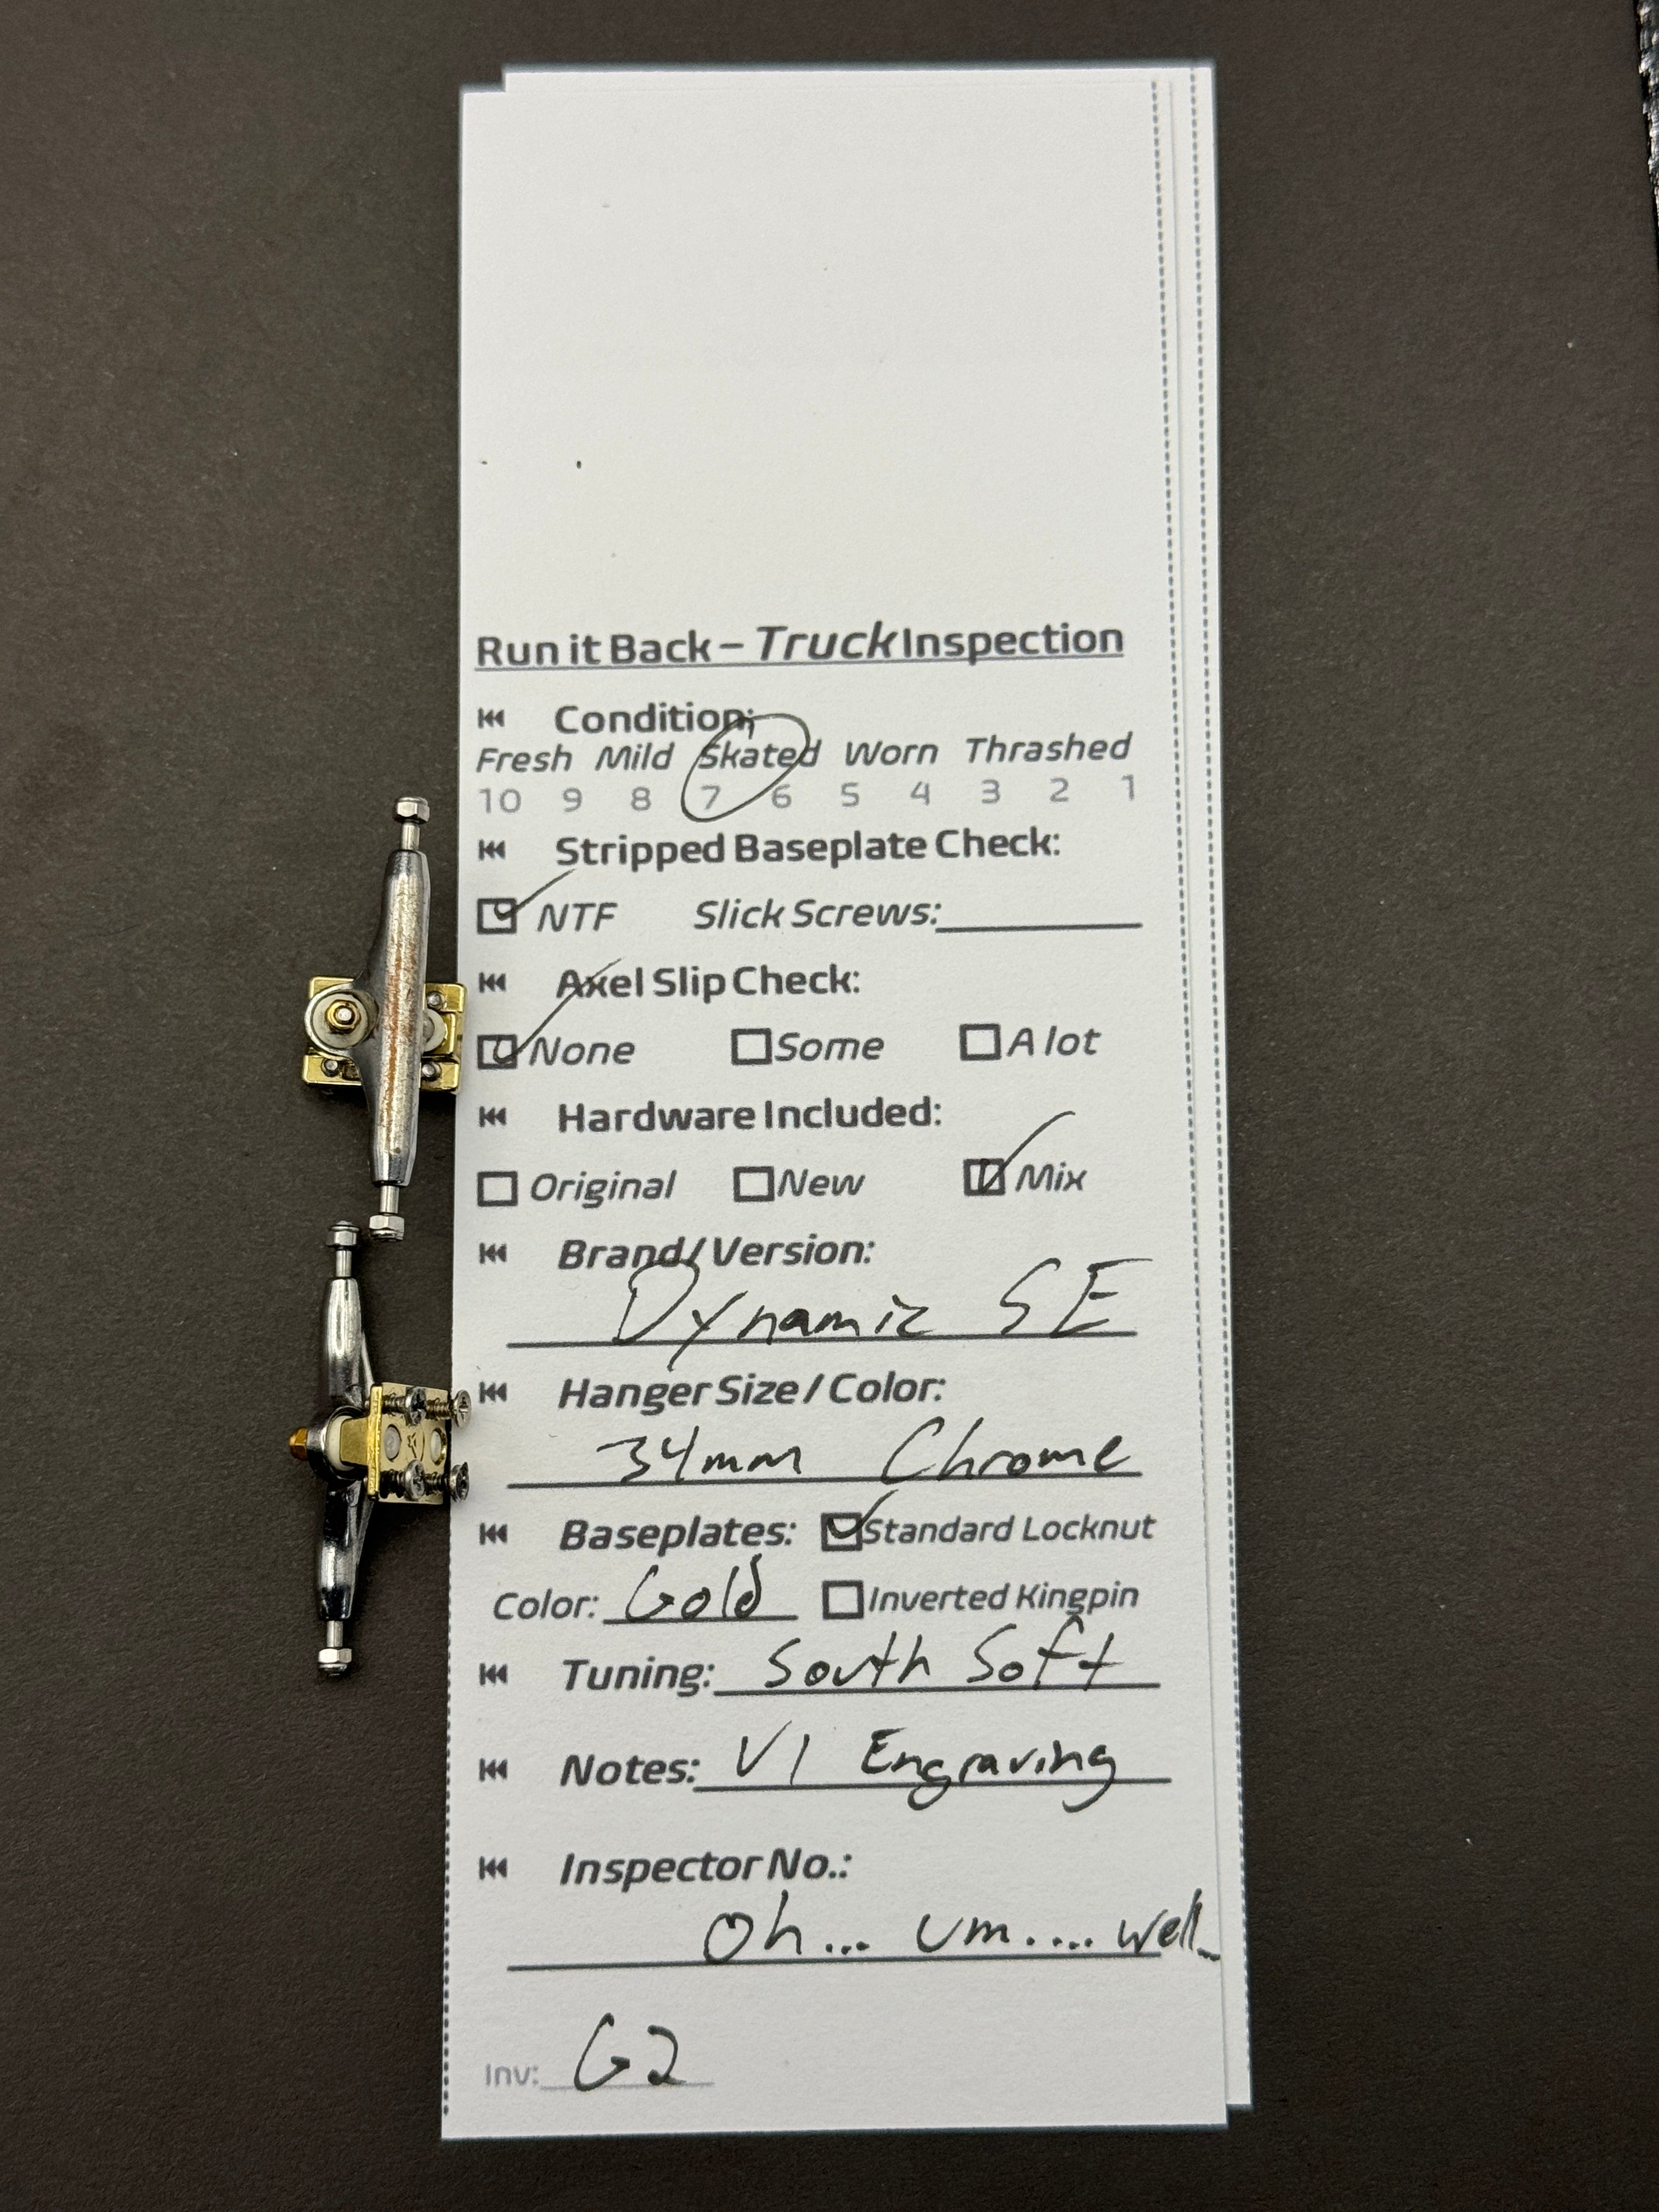 Run it Back – Truck Inspection
Condition:
Fresh Mild Skated Worn Thrashed
10 9 8 7 6 5 4 3 2 1
Stripped Baseplate Check:
NTF Slick Screws:
Axel Slip Check:
None Some A lot
Hardware Included:
Original New Mix
Brand/Version:
Dynamic SE
Hanger Size / Color:
34mm Chrome
Baseplates: Standard Locknut
Color: Gold Inverted Kingpin
Tuning: South Soft
Notes: V1 Engraving
Inspector No.:
Oh... um.... well_
Inv: G2